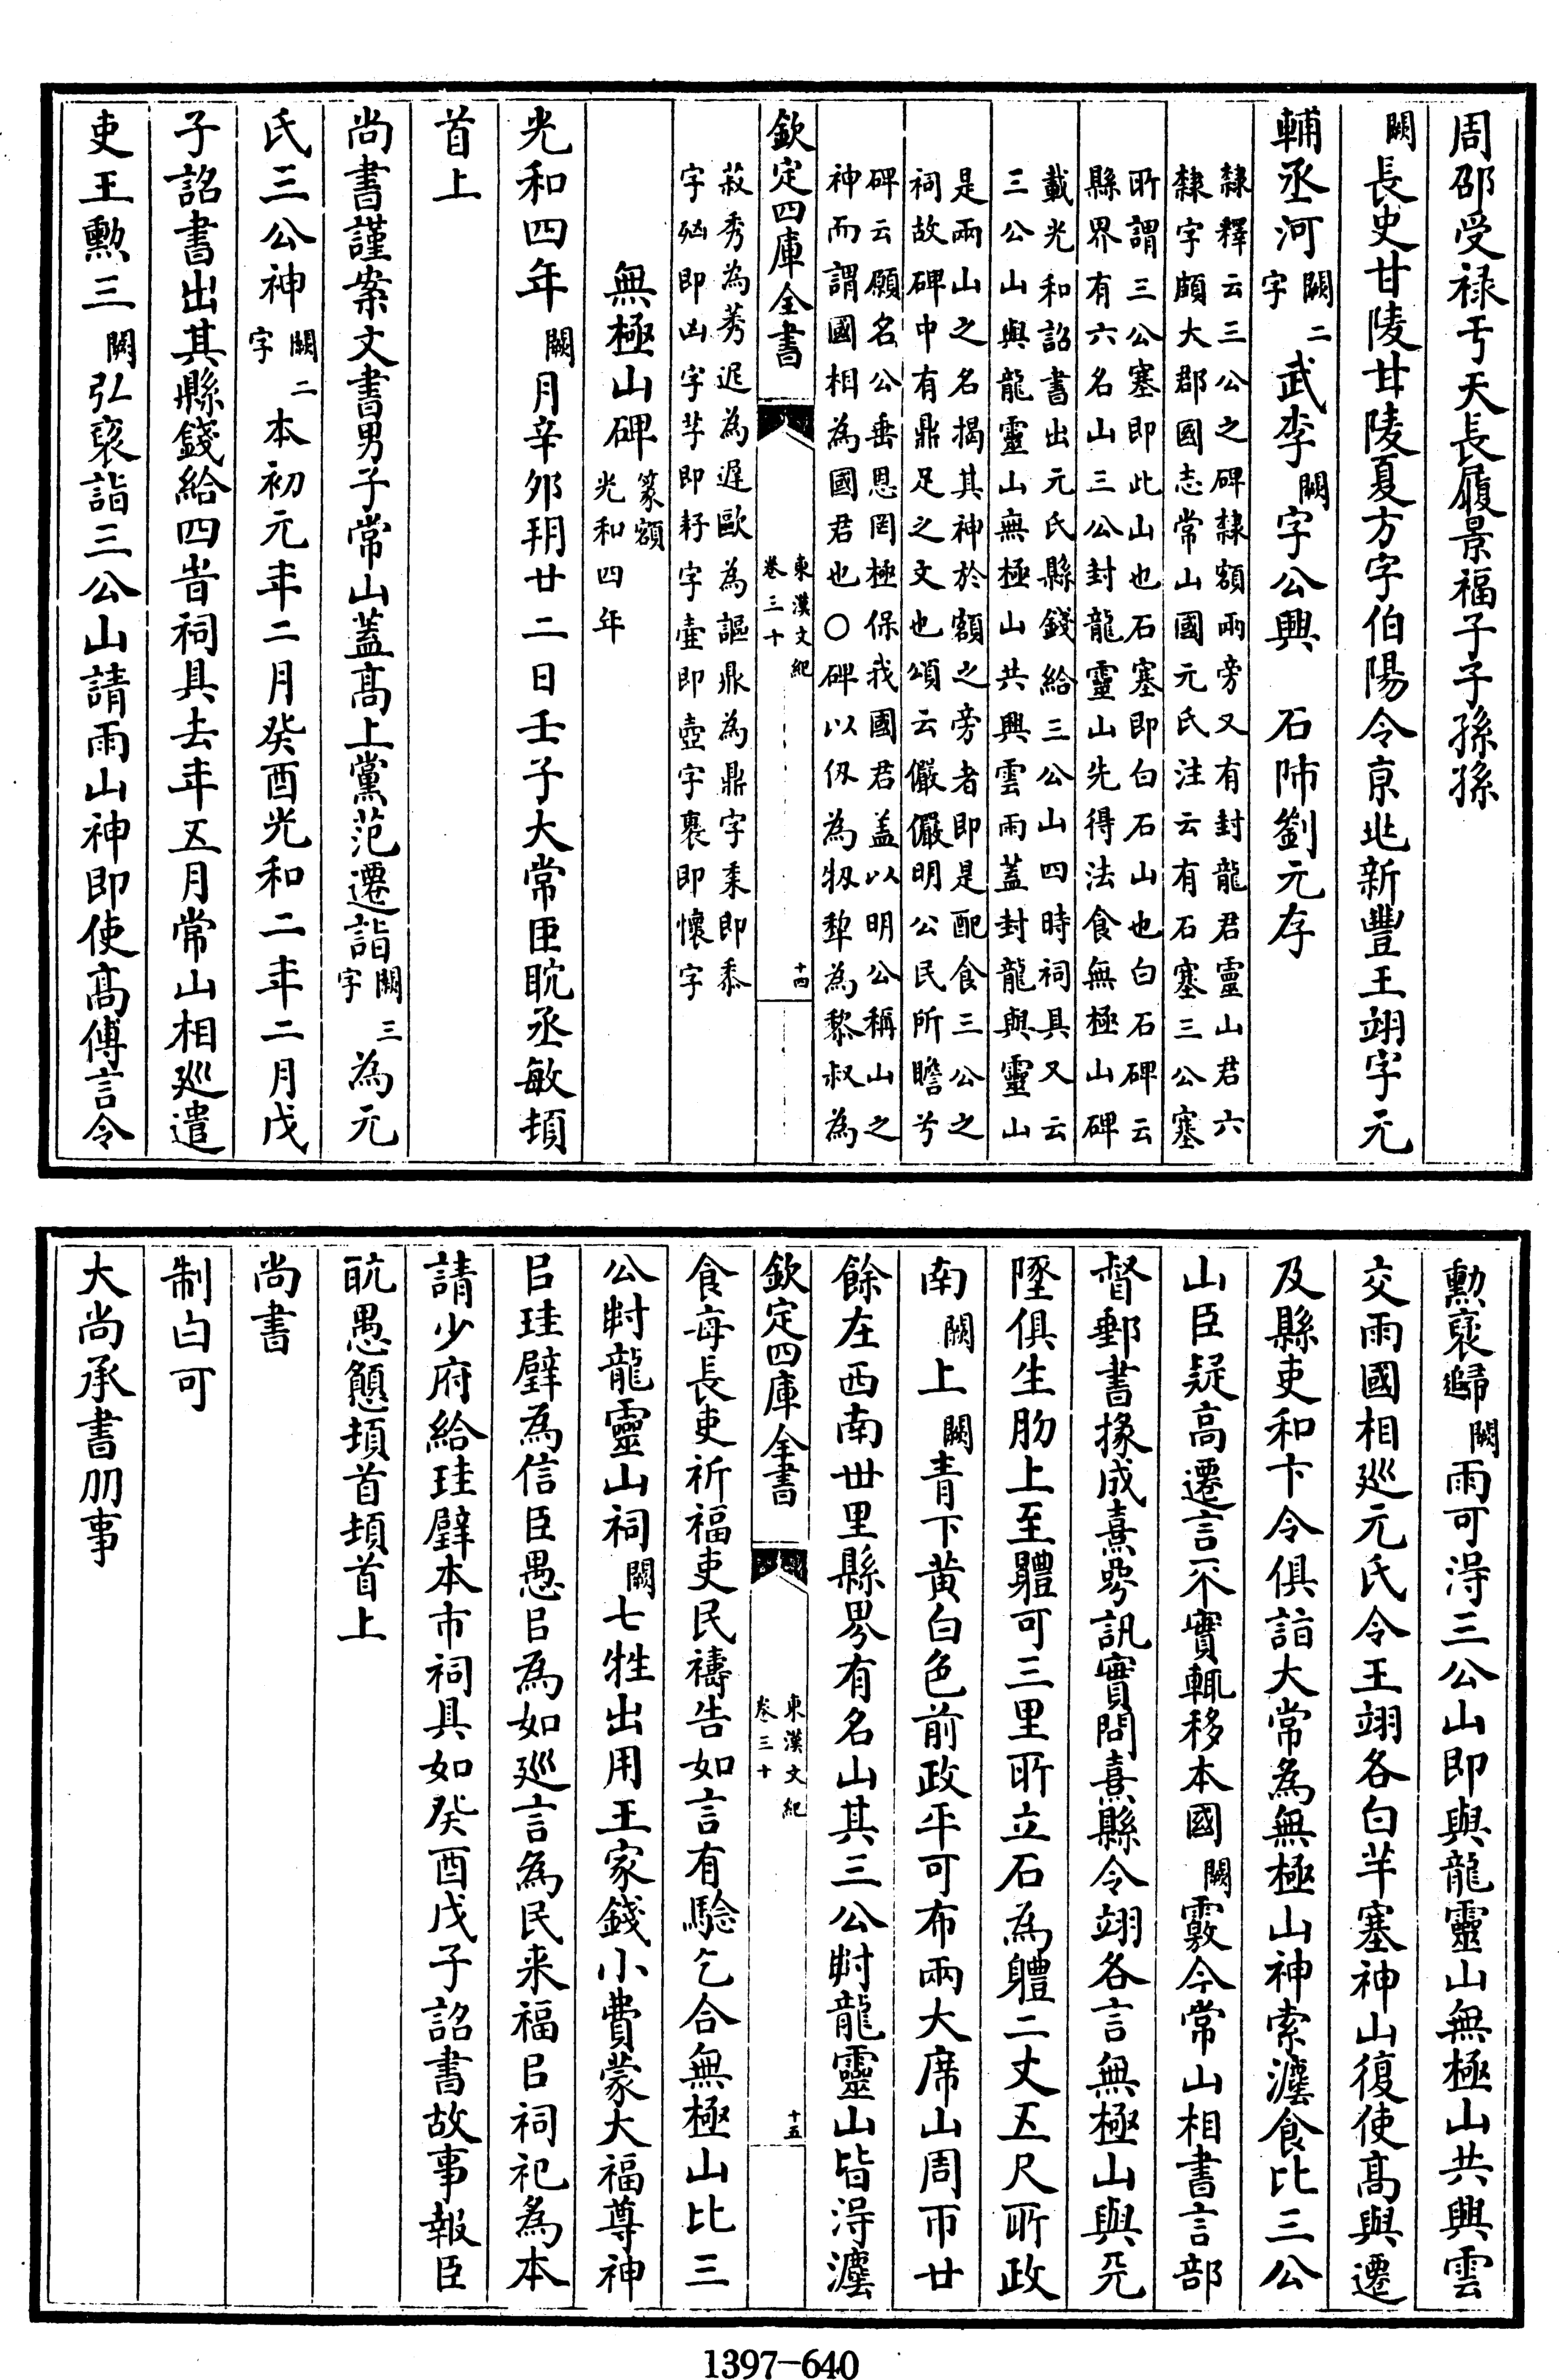 周邵受禄于天長履景福子子孫孫
闕長史甘陵甘陵夏方字伯陽令京兆新豐王翊字元
輔丞河闕二字武李闕字公興　石師劉元存
隸釋云三公之碑隸額兩旁又有封龍君靈山君六
隸字頗大郡國志常山國元氏注云有石塞三公塞
所謂三公塞即此山也石塞即白石山也白石碑云
縣界有六名山三公封龍靈山先得法食無極山碑
載光和詔書出元氏縣錢給三公山四時祠具又云
三公山與龍靈山無極山共興雲雨蓋封龍與靈山
是兩山之名揭其神於額之旁者即是配食三公之
祠故碑中有鼎足之文也頌云儼儼明公民所瞻兮
碑云願名公垂恩罔極保我國君盖以明公稱山之
神而謂國相為國君也〇碑以仭為牣犂為黎叔為
欽定四庫全書
東漢文紀
卷三十
十四
菽秀為莠迟為遲歐為謳鼎為鼎字秉即黍
字殈即凶字芓即耔字壷即壺字褱即懷字
無極山碑篆額光和四年
光和四年闕月辛夘朔廿二日壬子大常臣耽丞敏頓
首上
尚書謹案文書男子常山蓋髙上黨范遷詣闕三字為元
氏三公神闕二字本初元年二月癸酉光和二年二月戊
子詔書出其縣錢給四旹祠具去年五月常山相巡遣
吏王勲三闕弘裒詣三公山請雨山神即使髙傅言令
勲裒歸闕雨可淂三公山即與龍靈山無極山共興雲
交雨國相巡元氏令王翊各白羊塞神山復使髙與遷
及縣吏和卞令俱詣大常為無極山神索灋食比三公
山臣疑高遷言不實輒移本國闕覈今常山相書言部
督郵書掾成熹㝵訊實問熹縣令翊各言無極山與天
隥俱生肋上至軆可三里所立石為軆二丈五尺所政
南闕上闕青下黄白色前政平可布兩大席山周帀廿
餘左西南丗里縣界有名山其三公封龍靈山皆淂灋
欽定四庫全書
東漢文紀
卷三十
十五
食每長吏祈福吏民禱告如言有驗乞合無極山比三
公封龍靈山祠闕七牲出用王家錢小費蒙大福尊神
㠯珪璧為信臣愚㠯為如巡言為民来福㠯祠祀為本
請少府給珪璧本市祠具如癸酉戊子詔書故事報臣
耽愚戇頓首頓首上
尚書
制曰可
大尚承書刅事
1397-640